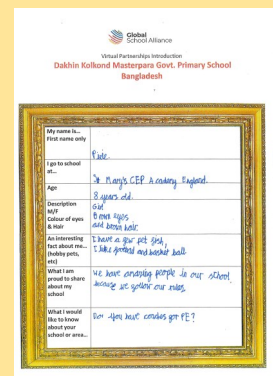 Global
School Alliance
Virtual Partnerships Introduction
Dakhin Kolkond Masterpara Govt. Primary School
Bangladesh
My name is...
First name only
I go to school
at...
St Mary's CEP Academy England.
Age
8 years old.
Description
M/F
Colour of eyes
& Hair
Girl
Brown eyes
and brown hair
An interesting
fact about me...
(hobby pets,
etc)
I have a pet fish,
I like football and basket ball
What I am
proud to share
about my
school
We have amazing people in our school
because we follow our rules
What I would
like to know
about your
school or area...
Do you have coaches for PE?